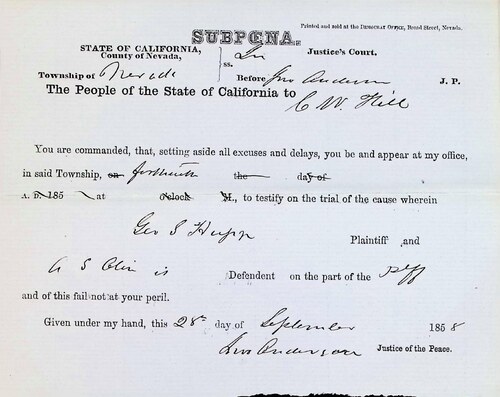 Printed and sold at the DEMOCRAT OFFICE, Broad Street, Nevada.
SUBPŒNA.
STATE OF CALIFORNIA,
County of Nevada, ss. In Justice's Court.
Township of Nevada Before Jno Anderson J. P.
The People of the State of California to
C W. Hill
You are commanded, that, setting aside all excuses and delays, you be and appear at my office,
in said Township, on forthwith the day of
A. D. 185 at O'clock M., to testify on the trial of the cause wherein
Geo S Hupp Plaintiff and
A S Olin is Defendent on the part of the Plff
and of this fail not at your peril.
Given under my hand, this 28th day of September 1858
Jno Anderson Justice of the Peace.